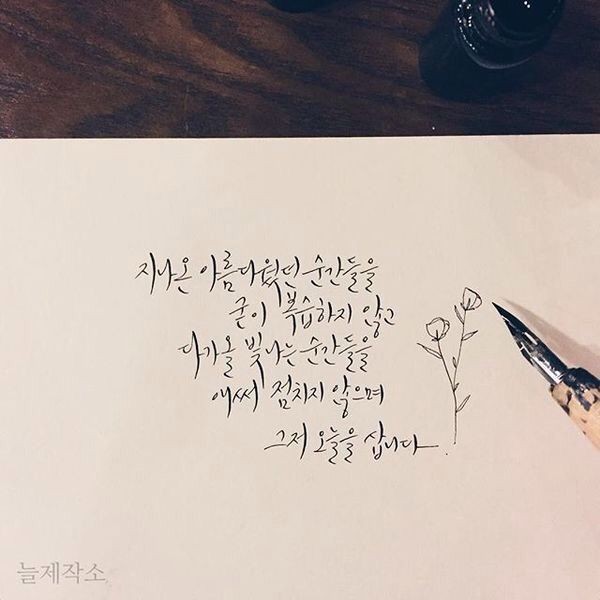 지나온 아름다웠던 순간들을
굳이 복습하지 않고
다가올 빛나는 순간들을
애써 점치지 않으며
그저 오늘을 삽니다.
늘제작소